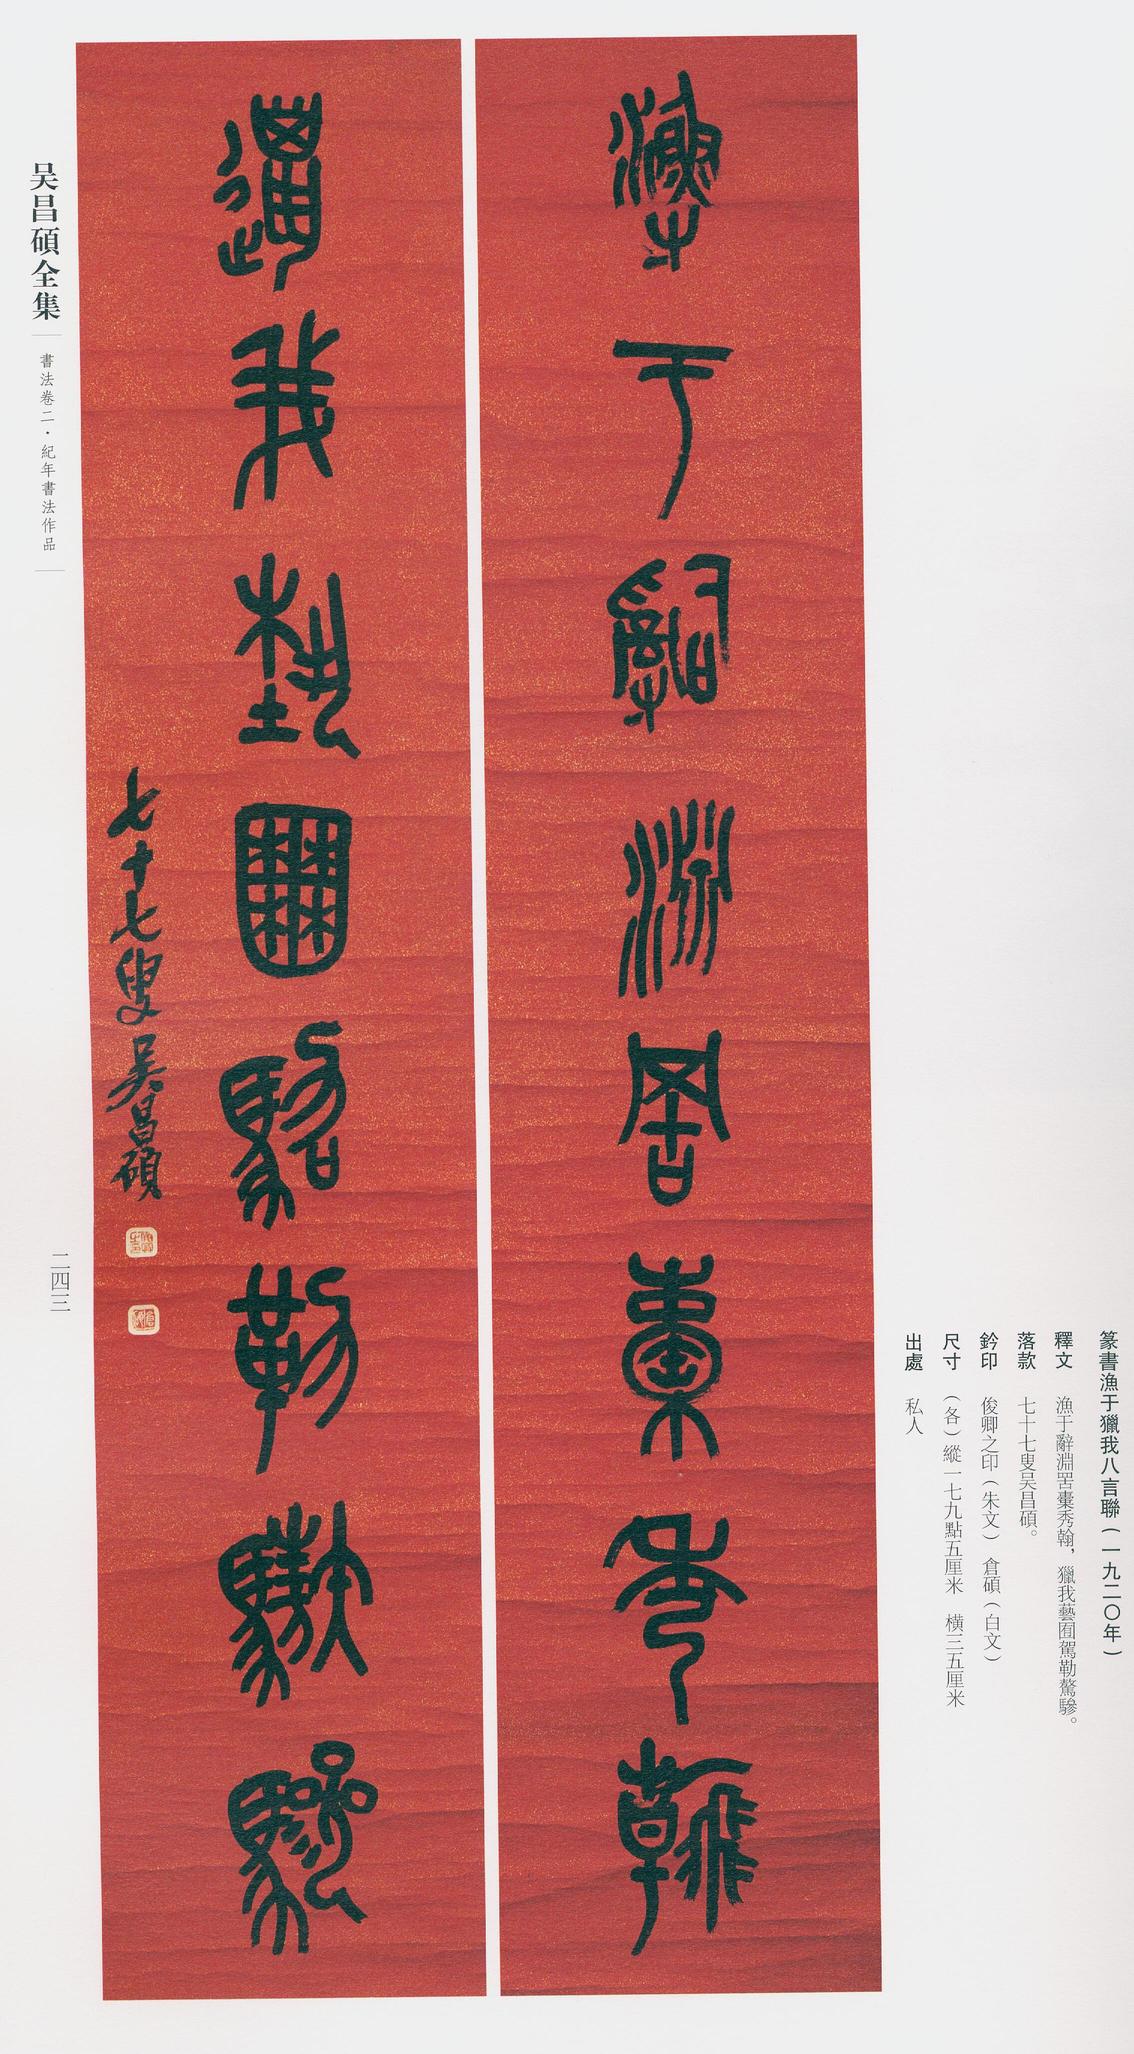 漁于辭淵罟櫜秀翰
獵我藝囿駕勒驁驂
七十七叟吴昌碩
篆書漁于獵我八言聯（一九二〇年）
釋文　漁于辭淵罟櫜秀翰，獵我藝囿駕勒驁驂。
落款　七十七叟吴昌碩。
鈐印　俊卿之印（朱文）　倉碩（白文）
尺寸　（各）縱一七九點五厘米　橫三五厘米
出處　私人
吴昌碩全集
書法卷二·紀年書法作品
二四三